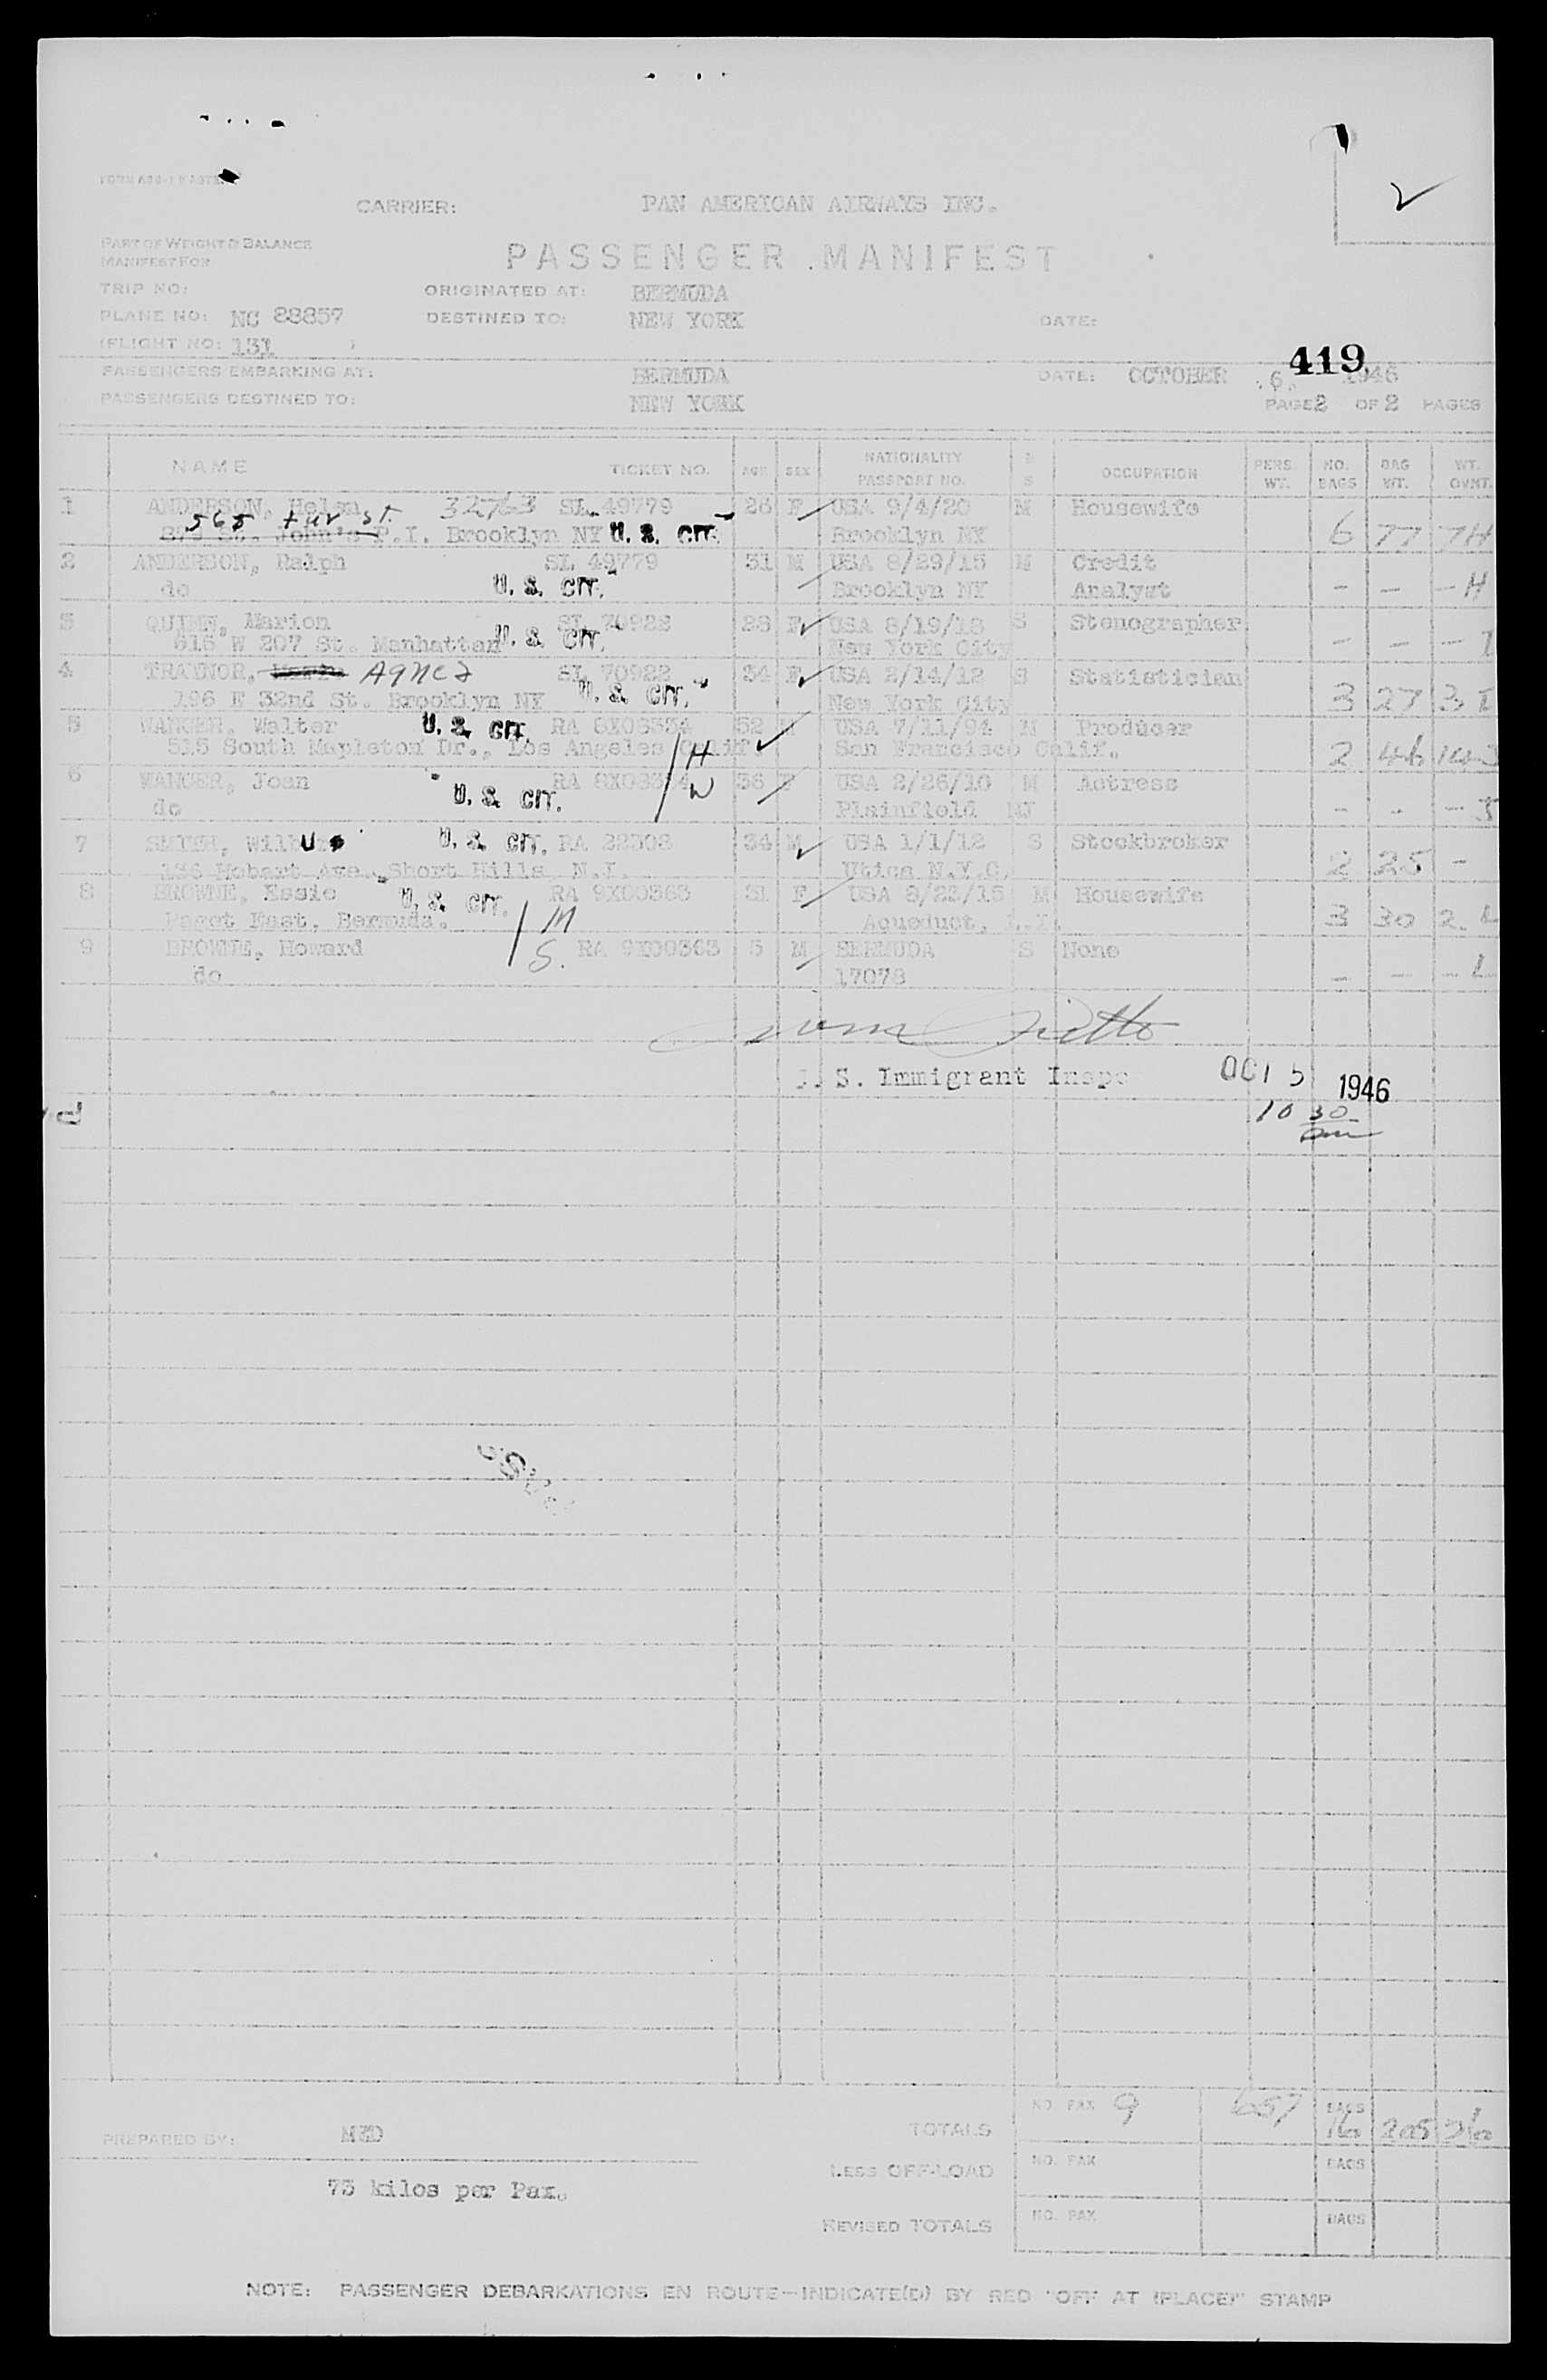 CARRIER: PAN AMERICAN AIRWAYS INC.
PART OF WEIGHT & BALANCE
MANIFEST FOR
PASSENGER MANIFEST
TRIP NO: ORIGINATED AT: BERMUDA
PLANE NO: NC 88857 DESTINED TO: NEW YORK DATE:
(FLIGHT NO: 131 )
419
PASSENGERS EMBARKING AT: BERMUDA DATE: OCTOBER 6. 1946
PASSENGERS DESTINED TO: NEW YORK PAGE 2 OF 2 PAGES
NAME TICKET NO. AGE SEX NATIONALITY PASSPORT NO. M S OCCUPATION PERS. WT. NO. BAGS BAG WT. WT. OVHT.
1 ANDERSON, Helen 32763 SL 49779 26 F USA 9/4/20 M Housewife
565 St. John's P.I. Brooklyn NY U. S. CIT. Brooklyn NY 6 77 7H
2 ANDERSON, Ralph SL 49779 31 M USA 8/29/15 M Credit
do U. S. CIT. Brooklyn NY Analyst - - - H
3 QUINN, Marion SL 70922 28 F USA 8/19/18 S Stenographer
616 W 207 St. Manhattan U. S. CIT. New York City - - - I
4 TRAYNOR, Agnes SL 70922 34 F USA 2/14/12 S Statistician
196 E 32nd St. Brooklyn NY U. S. CIT. New York City 3 27 3 I
5 WANGER, Walter U. S. CIT. RA 8X08334 52 M USA 7/11/94 M Producer
515 South Mapleton Dr., Los Angeles Calif H San Francisco Calif. 2 46
6 WANGER, Joan RA 8X08334 36 F USA 2/26/10 M Actress
do U. S. CIT. W Plainfield NJ - - -
7 SMITH, Wilbur U. S. CIT. RA 22308 34 M USA 1/1/12 S Stockbroker
136 Hobart Ave., Short Hills N.J. Utica N.Y.C. 2 25 -
8 BROWNE, Essie U. S. CIT. RA 9X00363 31 F USA 8/23/15 M Housewife
Paget East, Bermuda. M Aqueduct, L.I. 3 30 2 L
9 BROWNE, Howard RA 9X00363 5 M BERMUDA S None
do S. 17078 - - - L
S. Immigrant Inspe OCT 5 1946
10 30
am
TOTALS NO. PAX 9 657 BAGS 16 205
PREPARED BY: MED
LESS OFF-LOAD NO. PAX BAGS
73 kilos per Pax.
REVISED TOTALS NO. PAX BAGS
NOTE: PASSENGER DEBARKATIONS EN ROUTE—INDICATE(D) BY RED "OFF AT (PLACE)" STAMP